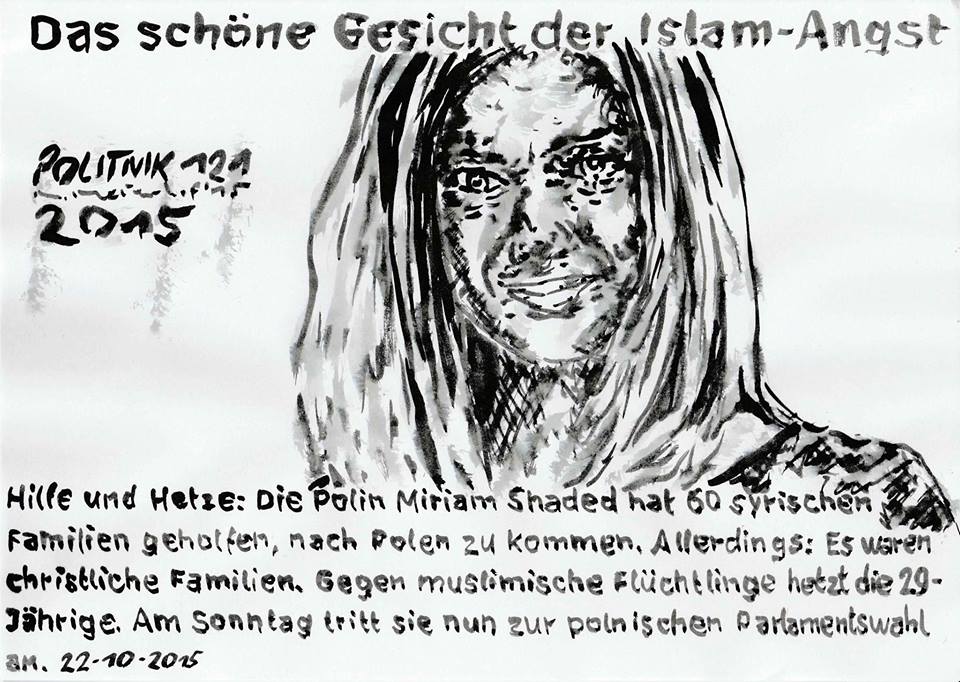 Das schöne Gesicht der Islam-Angst
POLITNIK 121
2015
Hilfe und Hetze: Die Polin Miriam Shaded hat 60 syrischen
Familien geholfen, nach Polen zu kommen. Allerdings: Es waren
christliche Familien. Gegen muslimische Flüchtlinge hetzt die 29-
Jährige. Am Sonntag tritt sie nun zur polnischen Parlamentswahl
an. 22-10-2015